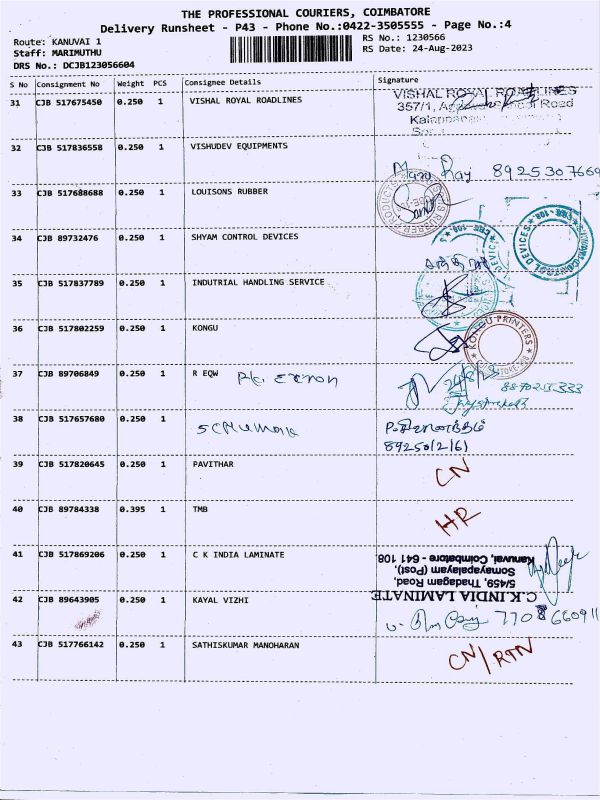 THE PROFESSIONAL COURIERS, COIMBATORE
Delivery Runsheet - P43 - Phone No.:0422-3505555 - Page No.:4
Route: KANUVAI 1
Staff: MARIMUTHU
DRS No.: DCJB123056604
RS No.: 1230566
RS Date: 24-Aug-2023
S No Consignment No Weight PCS Consignee Details Signature
31 CJB 517675450 0.250 1 VISHAL ROYAL ROADLINES
VISHAL ROYAL ROADLINES
357/1, Road
32 CJB 517836558 0.250 1 VISHUDEV EQUIPMENTS
8925307669
33 CJB 517688688 0.250 1 LOUISONS RUBBER
34 CJB 89732476 0.250 1 SHYAM CONTROL DEVICES
35 CJB 517837789 0.250 1 INDUTRIAL HANDLING SERVICE
36 CJB 517802259 0.250 1 KONGU
KONGU PRINTERS
37 CJB 89706849 0.250 1 R EQW
24/8/23
38 CJB 517657680 0.250 1
39 CJB 517820645 0.250 1 PAVITHAR CN
40 CJB 89784338 0.395 1 TMB HR
41 CJB 517869206 0.250 1 C K INDIA LAMINATE
C.K.INDIA LAMINATE
5/459, Thadagam Road,
Somayapalayam (Post),
Kanuvai, Coimbatore - 641 108
42 CJB 89643905 0.250 1 KAYAL VIZHI
43 CJB 517766142 0.250 1 SATHISKUMAR MANOHARAN CN/RTN